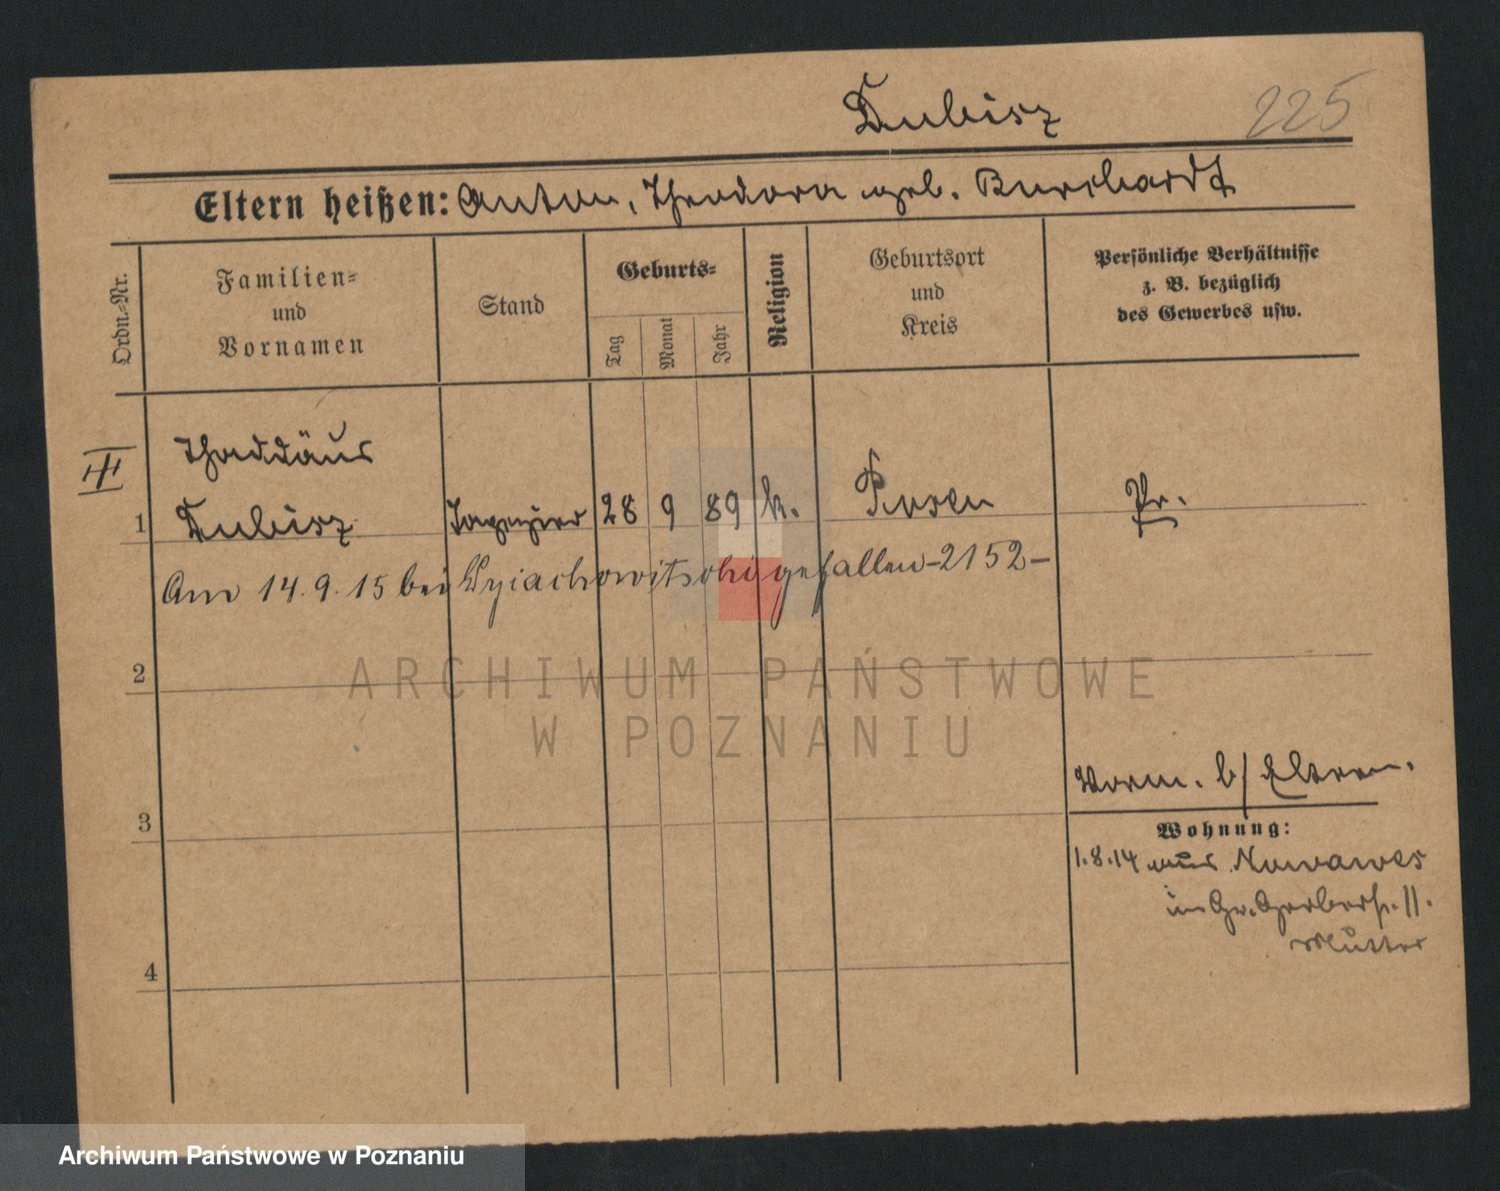 Dubisz 225
Eltern heißen: Anton, Theodora geb. Burchardt
Ordn.-Nr.
Familien-
und
Vornamen
Stand
Geburts-
Tag
Monat
Jahr
Religion
Geburtsort
und
Kreis
Persönliche Verhältnisse
z. B. bezüglich
des Gewerbes usw.
Thaddäus
1 Dubisz 28 9 89 k. Posen Pr.
Am 14.9.15 bei gefallen -2152-
2
ARCHIWUM PAŃSTWOWE
W POZNANIU
Vorm. b/ Eltern.
3
Wohnung:
1.8.14 aus Nowawes
in Gr. Gerberstr. 11.
Mutter
4
Archiwum Państwowe w Poznaniu